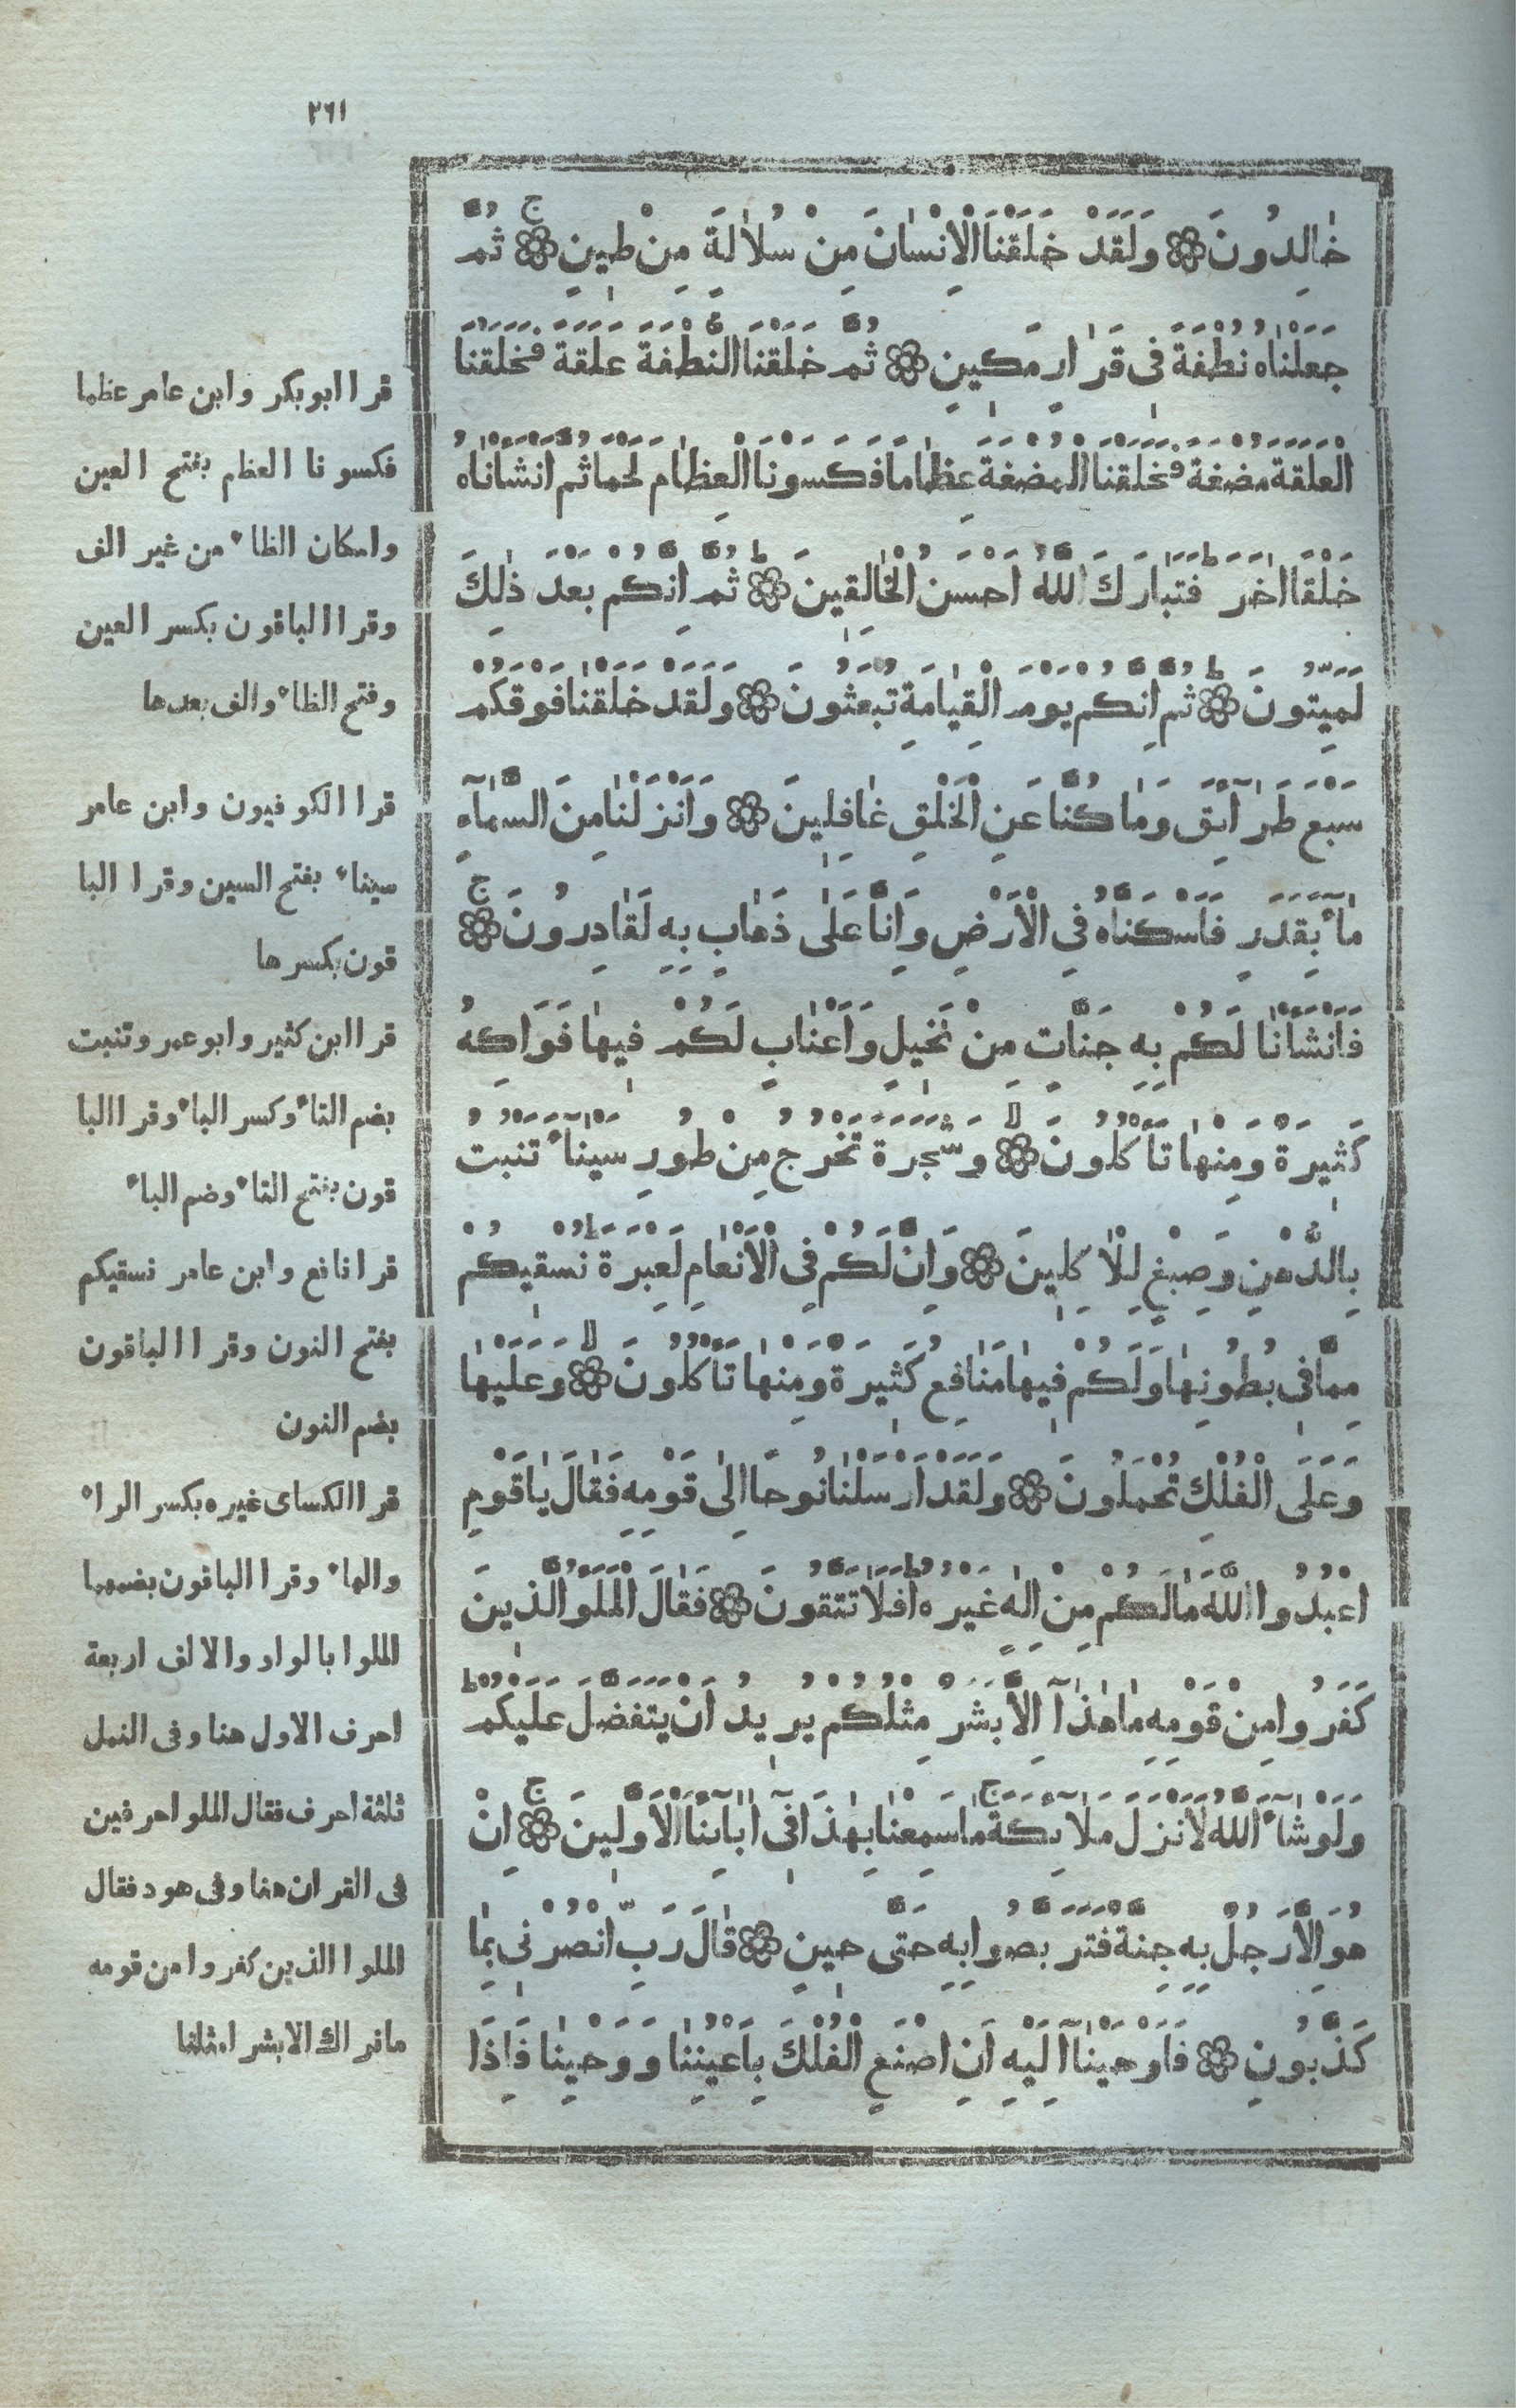 ٢٦١
خَالِدُونَ ۞ وَلَقَدْ خَلَقْنَا الْاِنْسَانَ مِنْ سُلَالَةٍ مِنْ طِينٍ ج ۞ ثُمَّ
جَعَلْنَاهُ نُطْفَةً فِى قَرَارٍ مَكِينٍ ۞ ثُمَّ خَلَقْنَا النُّطْفَةَ عَلَقَةً فَخَلَقْنَا
الْعَلَقَةَ مُضْغَةً فَخَلَقْنَا الْمُضْغَةَ عِظَامًا فَكَسَوْنَا الْعِظَامَ لَحْمًا ثُمَّ اَنْشَاْنَاهُ
خَلْقًا اٰخَرَ ط فَتَبَارَكَ اللّٰهُ اَحْسَنُ الْخَالِقِينَ ط ۞ ثُمَّ اِنَّكُمْ بَعْدَ ذٰلِكَ
لَمَيِّتُونَ ط ۞ ثُمَّ اِنَّكُمْ يَوْمَ الْقِيَامَةِ تُبْعَثُونَ ۞ وَلَقَدْ خَلَقْنَا فَوْقَكُمْ
سَبْعَ طَرَآئِقَ وَمَا كُنَّا عَنِ الْخَلْقِ غَافِلِينَ ۞ وَاَنْزَلْنَا مِنَ السَّمَآءِ
مَآءً بِقَدَرٍ فَاَسْكَنَّاهُ فِى الْاَرْضِ وَاِنَّا عَلٰى ذَهَابٍ بِهِ لَقَادِرُونَ ج ۞
فَاَنْشَاْنَا لَكُمْ بِهِ جَنَّاتٍ مِنْ نَخِيلٍ وَاَعْنَابٍ لَكُمْ فِيهَا فَوَاكِهُ
كَثِيرَةٌ وَمِنْهَا تَاْكُلُونَ لا ۞ وَشَجَرَةً تَخْرُجُ مِنْ طُورِ سَيْنَآءَ تَنْبُتُ
بِالدُّهْنِ وَصِبْغٍ لِلْاٰكِلِينَ ۞ وَاِنَّ لَكُمْ فِى الْاَنْعَامِ لَعِبْرَةً ط نُسْقِيكُمْ
مِمَّا فِى بُطُونِهَا وَلَكُمْ فِيهَا مَنَافِعُ كَثِيرَةٌ وَمِنْهَا تَاْكُلُونَ لا ۞ وَعَلَيْهَا
وَعَلَى الْفُلْكِ تُحْمَلُونَ ۞ وَلَقَدْ اَرْسَلْنَا نُوحًا اِلٰى قَوْمِهِ فَقَالَ يَا قَوْمِ
اعْبُدُوا اللّٰهَ مَا لَكُمْ مِنْ اِلٰهٍ غَيْرُهُ ط اَفَلَا تَتَّقُونَ ۞ فَقَالَ الْمَلَؤُا الَّذِينَ
كَفَرُوا مِنْ قَوْمِهِ مَا هٰذَآ اِلَّا بَشَرٌ مِثْلُكُمْ يُرِيدُ اَنْ يَتَفَضَّلَ عَلَيْكُمْ ط
وَلَوْ شَآءَ اللّٰهُ لَاَنْزَلَ مَلَآئِكَةً ج مَا سَمِعْنَا بِهٰذَا فِىٓ اٰبَآئِنَا الْاَوَّلِينَ ج ۞ اِنْ
هُوَ اِلَّا رَجُلٌ بِهِ جِنَّةٌ فَتَرَبَّصُوا بِهِ حَتَّى حِينٍ ۞ قَالَ رَبِّ انْصُرْنِى بِمَا
كَذَّبُونِ ۞ فَاَوْحَيْنَآ اِلَيْهِ اَنِ اصْنَعِ الْفُلْكَ بِاَعْيُنِنَا وَوَحْيِنَا فَاِذَا
قرا ابو بكر وابن عامر عظما
فكسونا العظم بفتح العين
وامكان الظاء من غير الف
وقرا الباقون بكسر العين
وفتح الظاء والف بعدها
قرا الكوفيون وابن عامر
سيناء بفتح السين وقرا البا
قون بكسرها
قرا ابن كثير وابو عمرو تنبت
بضم التاء وكسر الباء وقرا البا
قون بفتح التاء وضم الباء
قرا نافع وابن عامر نسقيكم
بفتح النون وقرا الباقون
بضم النون
قرا الكساى غيره بكسر الراء
والهاء وقرا الباقون بضمهما
الملوا بالواو والالف اربعة
احرف الاول هنا وفى النمل
ثلثة احرف فقال الملو احرفين
فى القران هنا وفى هود فقال
الملوا الذين كفروا من قومه
ما نراك الا بشرا مثلنا